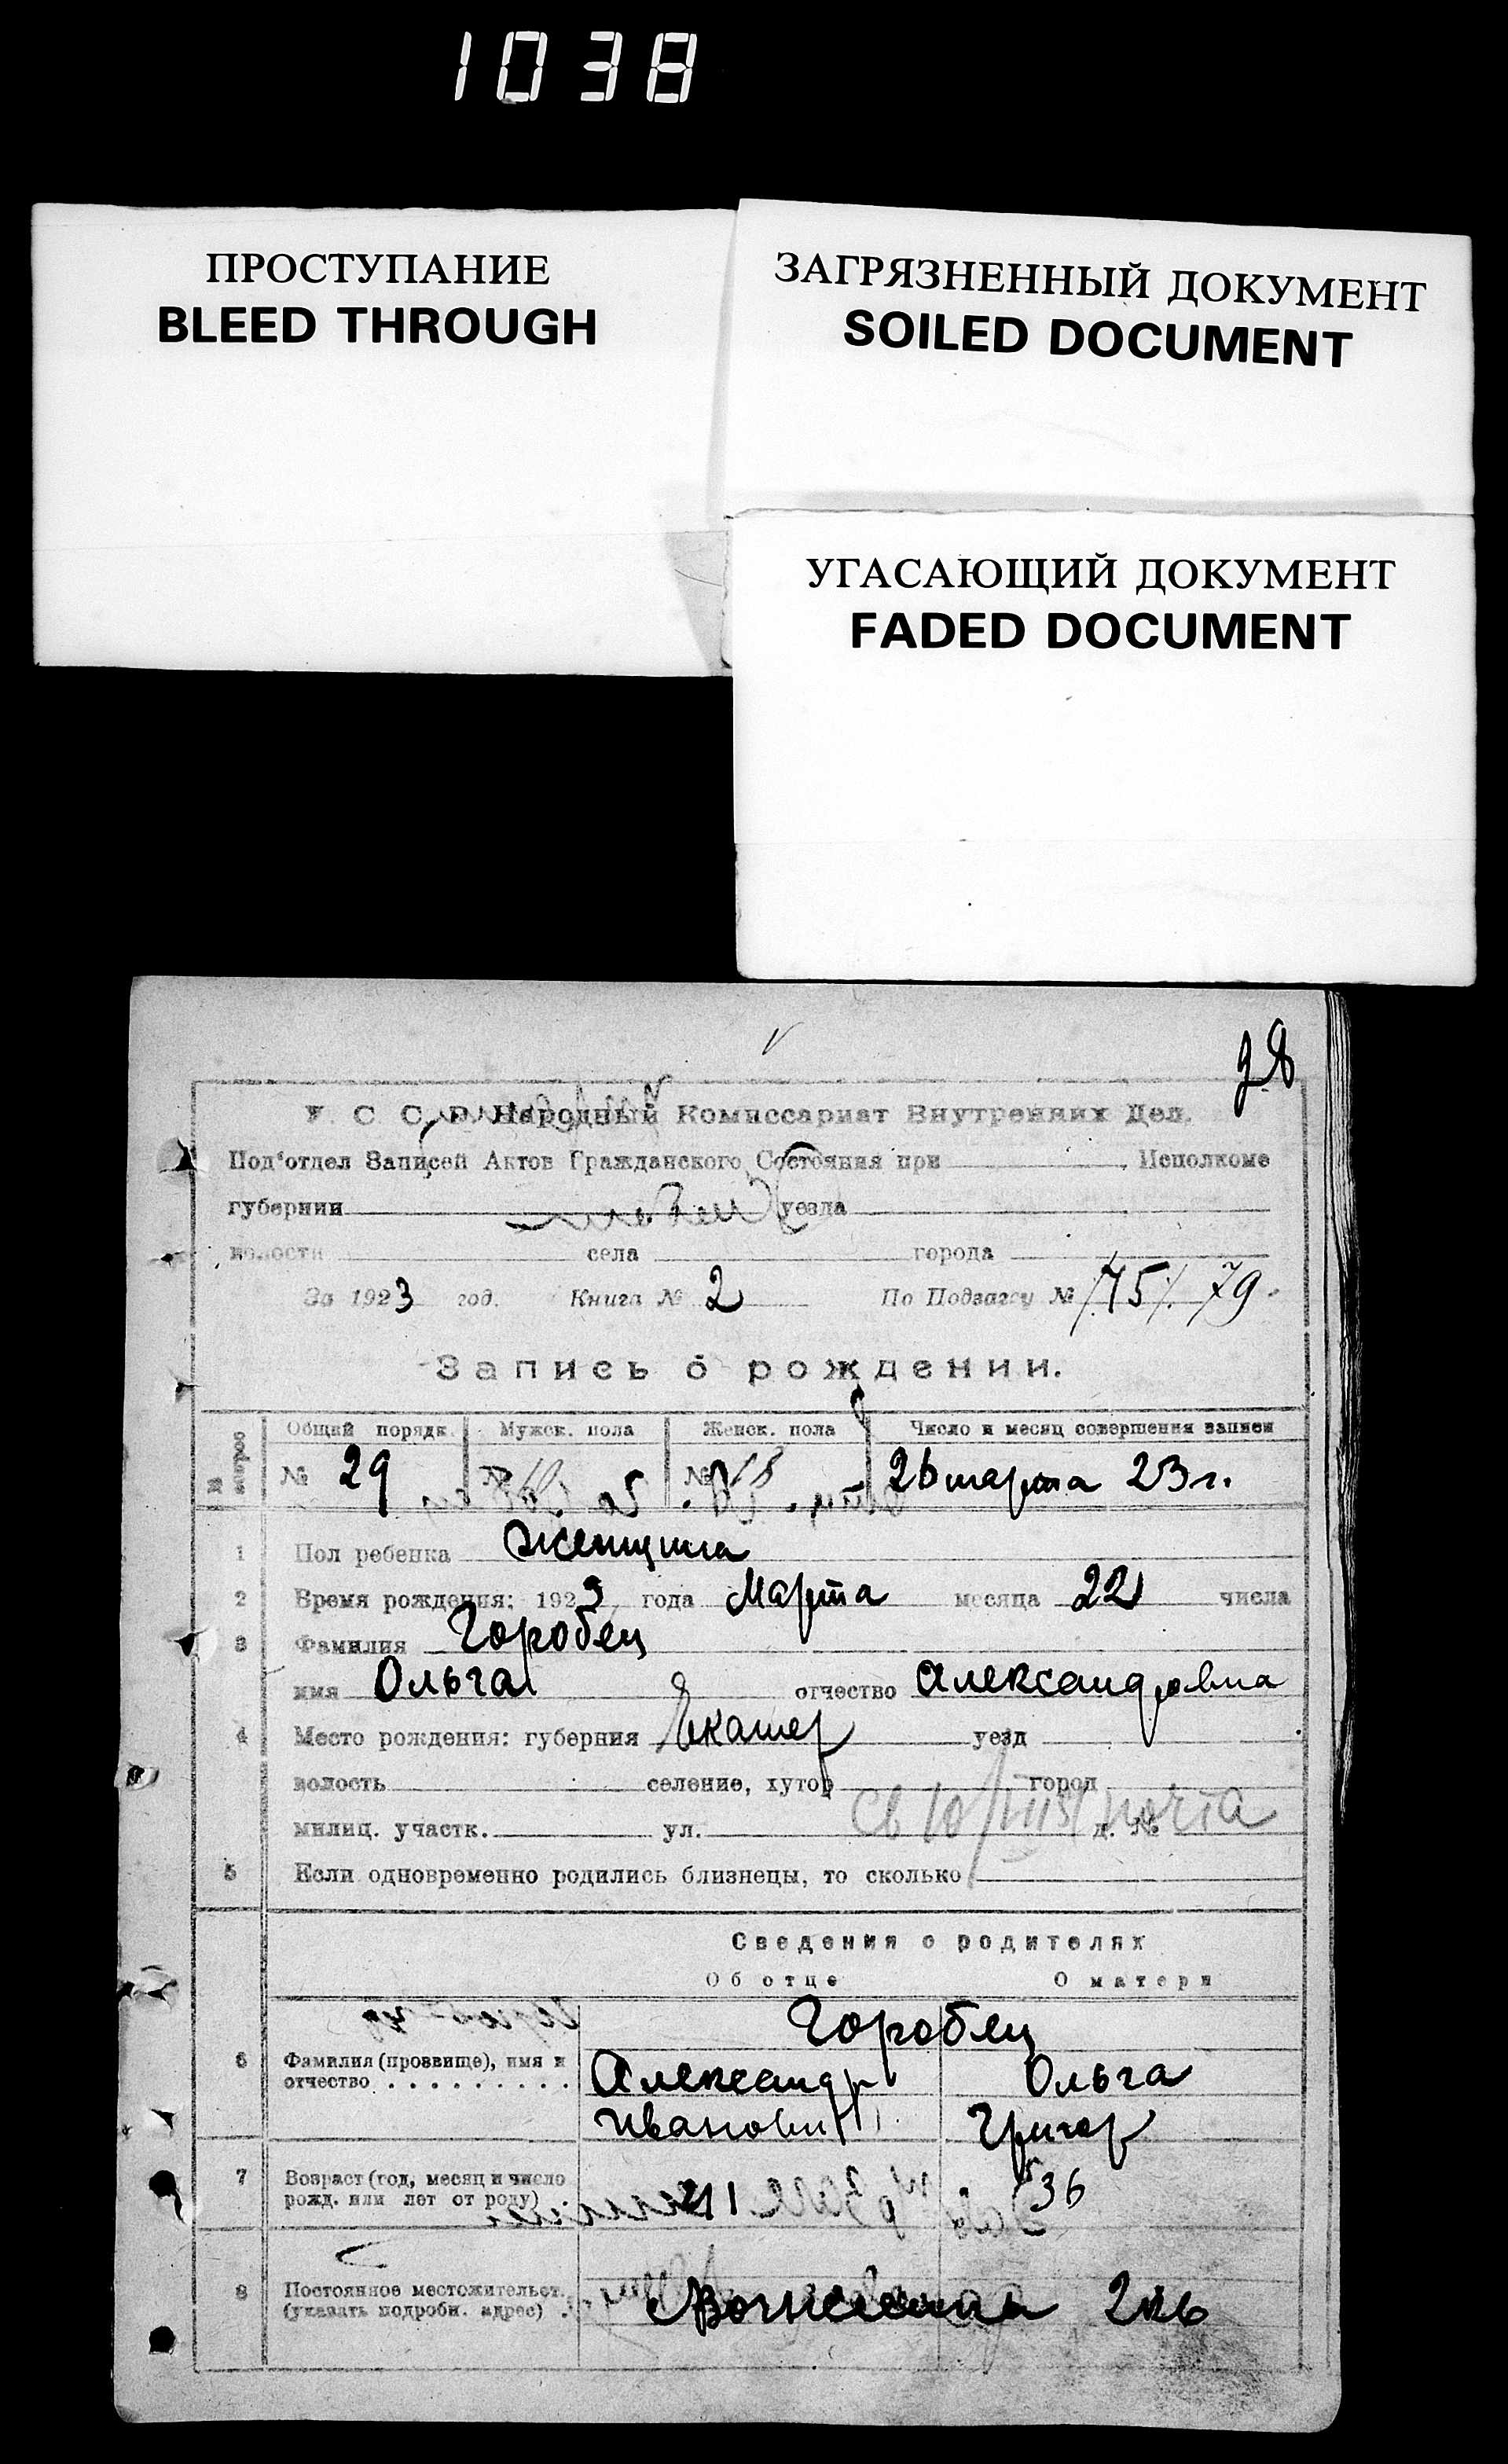 1038
ПРОСТУПАНИЕ
BLEED THROUGH
ЗАГРЯЗНЕННЫЙ ДОКУМЕНТ
SOILED DOCUMENT
УГАСАЮЩИЙ ДОКУМЕНТ
FADED DOCUMENT
У. С. С. Р. Народный Комиссариат Внутренних Дел.
Под'отдел Записей Актов Гражданского Состояния при Исполкоме
губернии уезда
волости села города
За 1923 год. Книга № 2 По Подзагсу № 79.
Запись о рождении.
Общий порядк. Мужск. пола Женск. пола Число и месяц совершения записи
№ вопрос
№ 29 № № 18 26 марта 23 г.
1 Пол ребенка женщина
2 Время рождения: 1923 года Марта месяца 22 числа
3 Фамилия Горобец
имя Ольга отчество Александровна
4 Место рождения: губерния Екатер уезд
волость селение, хутор город
милиц. участк. ул. д. №
5 Если одновременно родились близнецы, то сколько
Сведения о родителях
Об отце О матери
Горобец
6 Фамилия (прозвище), имя и отчество Александр Ольга
Иванович Григор
7 Возраст (год, месяц и число рожд. или лет от роду) 36
8 Постоянное местожительст. (указать подробн. адрес)